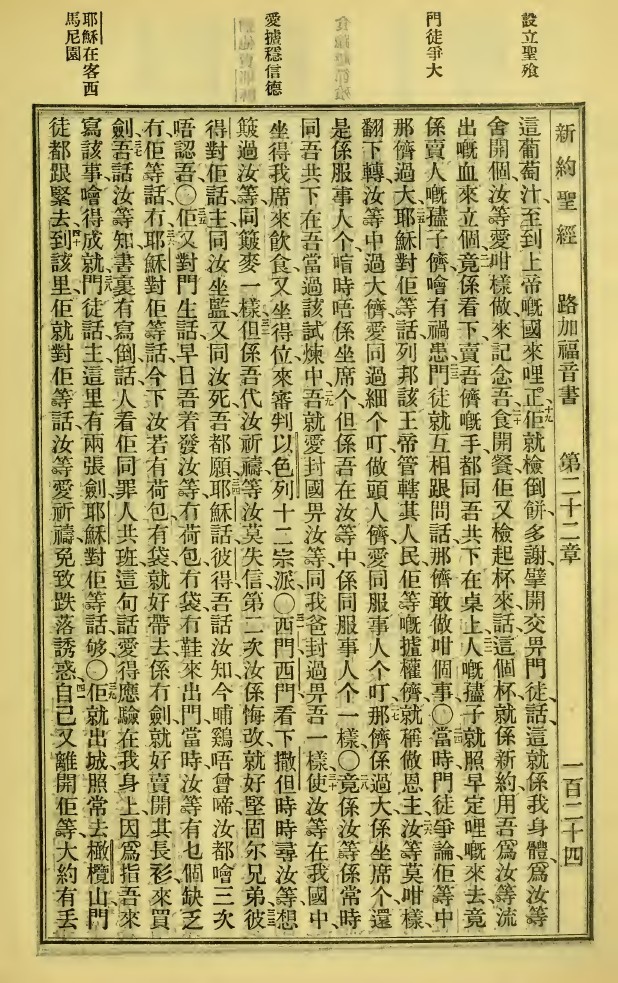 設立聖飱
門徒爭大
愛據穩信德
耶穌在客西
馬尼園
新約聖經 路加福音書 第二十二章 一百二十四
這葡萄汁、至到上帝嘅國來哩正、十九佢就檢倒餅多謝、擘開交畀門徒、話這就係我身體、爲汝等
舍開個、汝等愛咁樣做來記念吾、二十食開餐佢又檢起杯來話、這個杯就係新約、用吾爲汝等流
出嘅血來立個、竟係看下、賣吾儕嘅手、都同吾共下在桌上、人嘅孻子就照早定哩嘅來去、竟
係賣人嘅孻子儕、噲有禍患、門徒就互相跟問話、那儕敢做咁個事、〇當時門徒爭論、佢等中
那儕過大、耶穌對佢等話、列邦該王帝管轄其人民、佢等嘅攎權儕、就稱做恩主、汝等莫咁樣、
翻下轉、汝等中過大儕、愛同過細个叮、做頭人儕、愛同服事人个叮、那儕係過大、係坐席个、還
是係服事人个、喑時唔係坐席个、但係吾在汝等中、係同服事人个一樣、〇竟係汝等係常時
同吾共下、在吾當過該試煉中、吾就愛封國畀汝等、同我爸封過畀吾一樣、使汝等在我國中、
坐得我席來飲食、又坐得位來審判以色列十二宗派、〇西門西門、看下、撒但時時尋汝等、想
簸過汝等、同簸麥一樣、但係吾代汝祈禱、等汝莫失信、第二次汝係悔改、就好堅固尔兄弟、彼
得對佢話、主、同汝坐監、又同汝死、吾都願、耶穌話、彼得、吾話汝知、今晡鷄唔曾啼、汝都噲三次
唔認吾、〇佢又對門生話、早日吾着發汝等、冇荷包、冇袋、冇鞋來出門、當時汝等有乜個缺乏
冇、佢等話、冇、耶穌對佢等話、今下汝若有荷包、有袋、就好帶去、係冇劍、就好賣開其長衫來買
劍、吾話汝等知、書裏有寫倒話、人看佢同罪人共班、這句話愛得應驗在我身上、因爲指吾來
寫該事、噲得成就、門徒話、主、這里有兩張劍、耶穌對佢等話、够、〇佢就出城、照常去橄欖山、門
徒都跟緊去、四十到該里、佢就對佢等話、汝等愛祈禱、免致跌落誘惑、自己又離開佢等、大約有丟